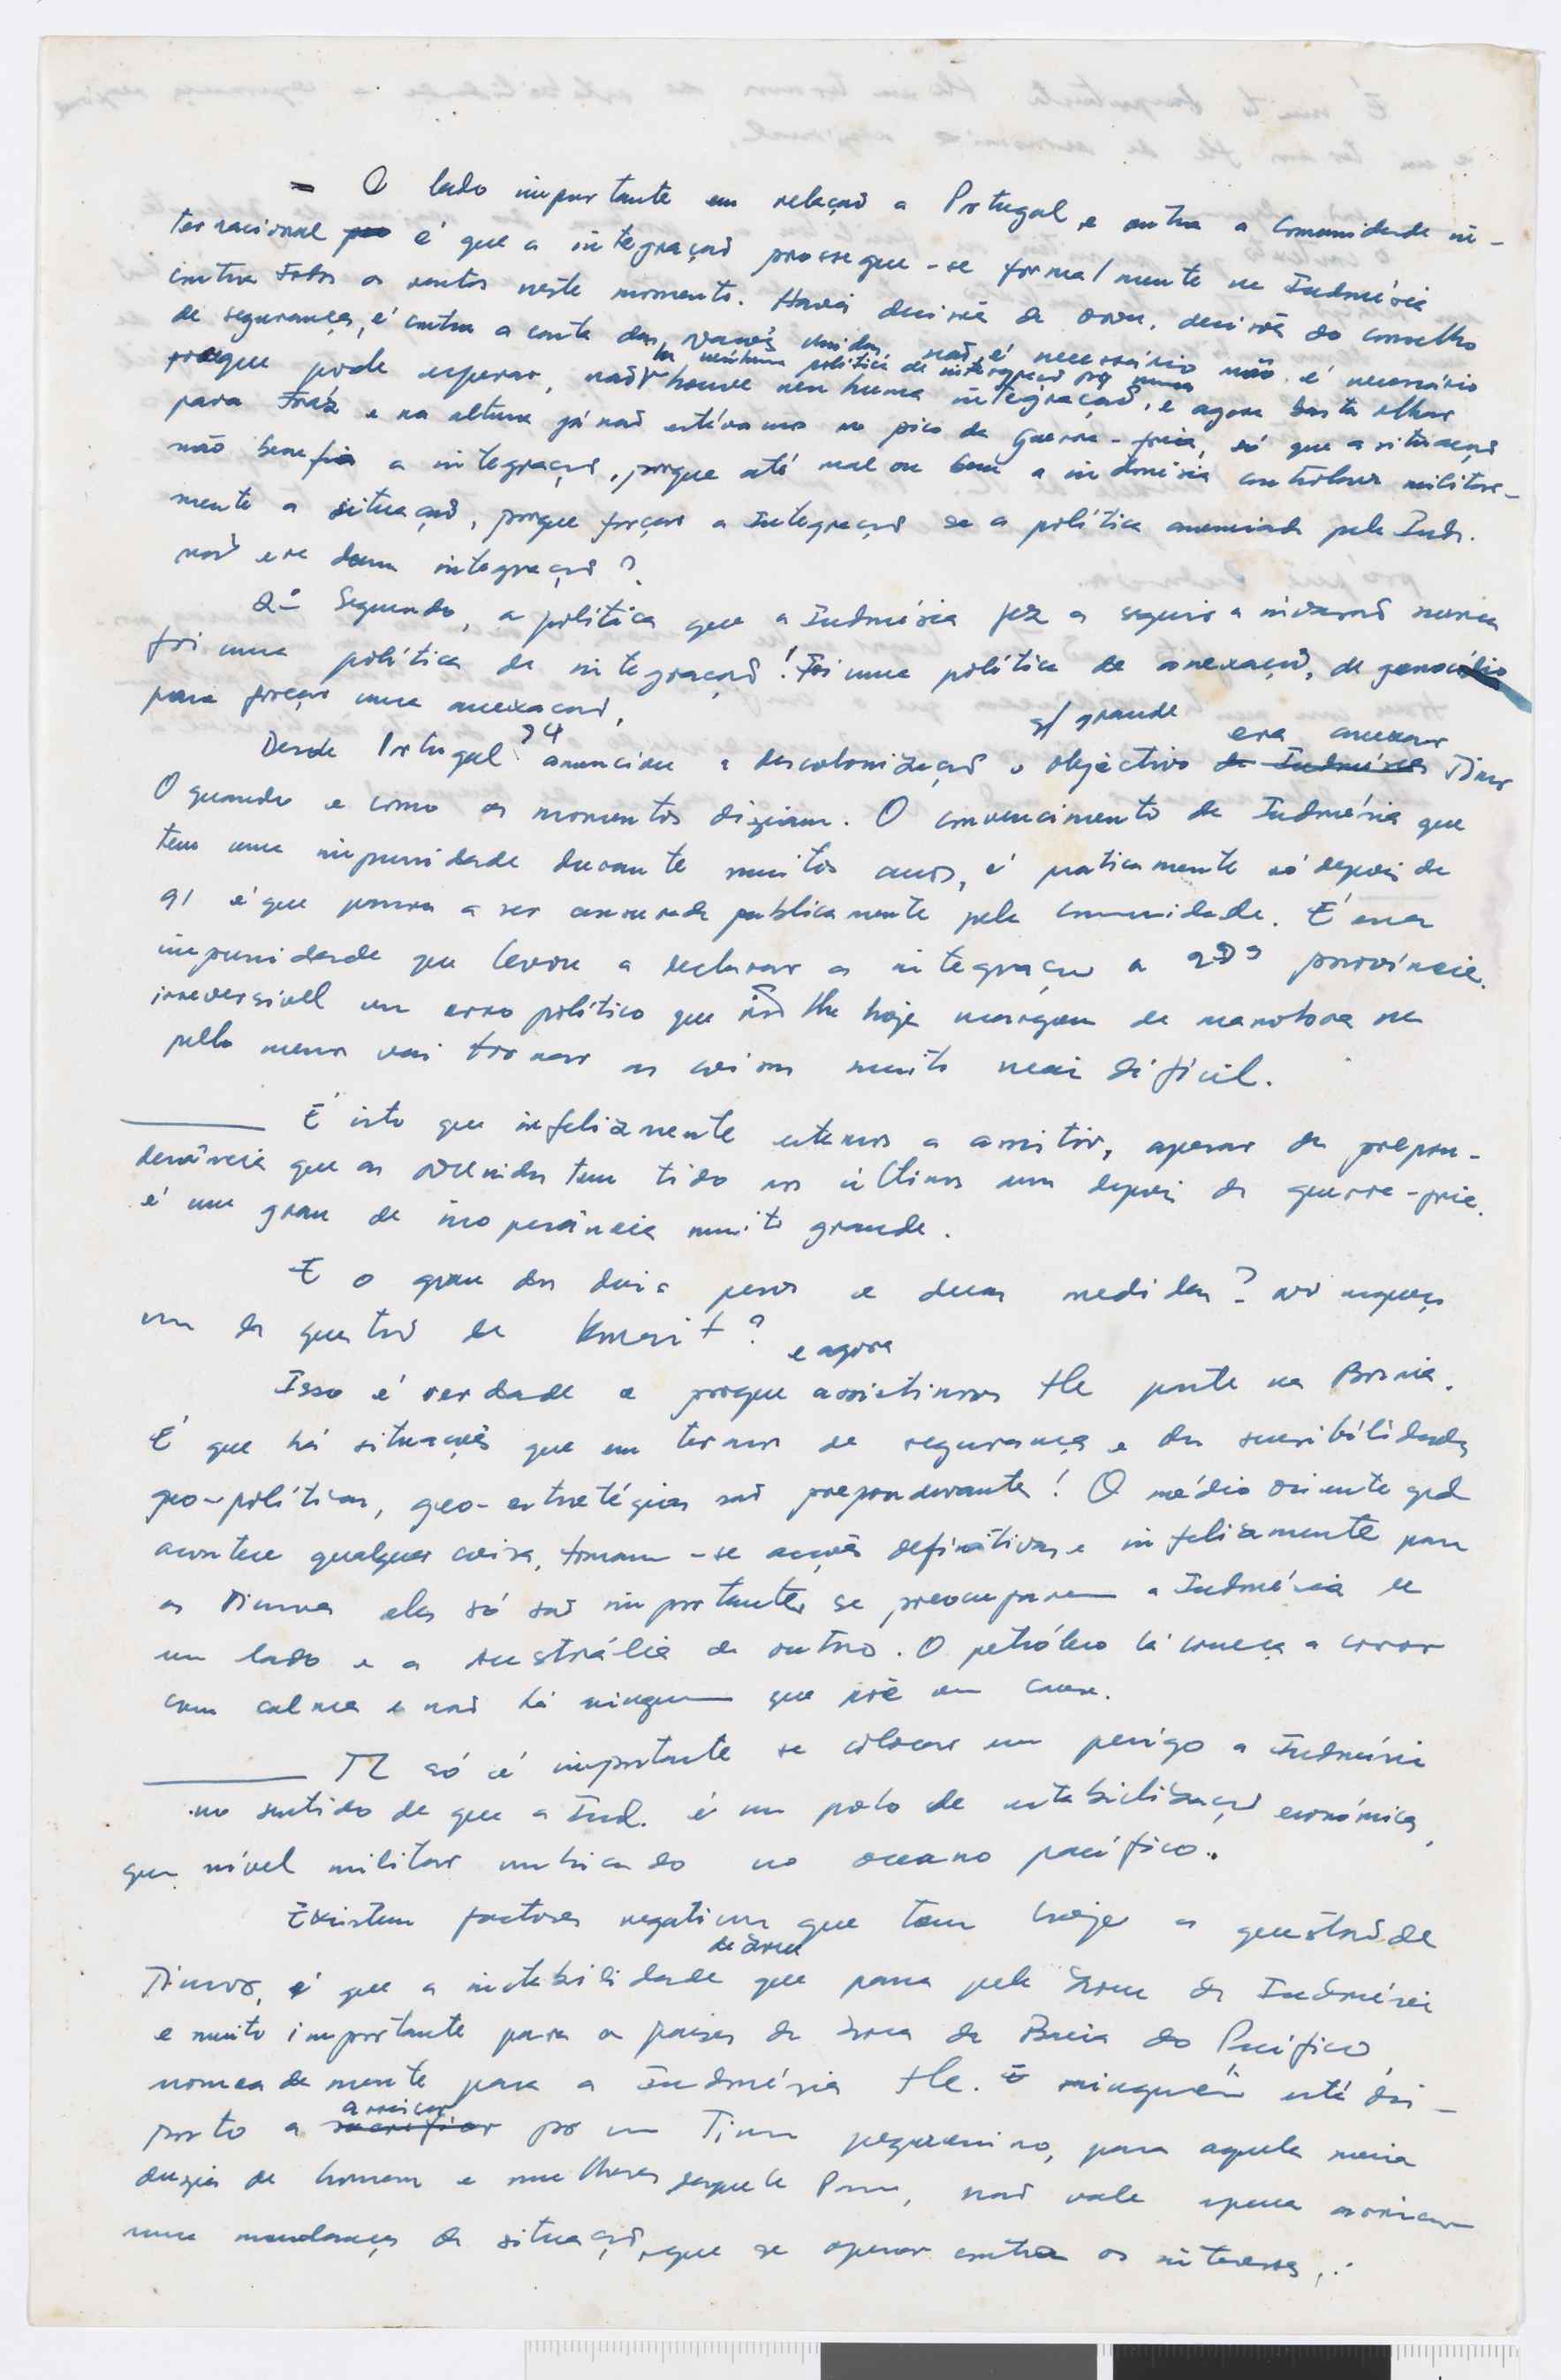 - O lado importante em relação a Portugal, e outra a comunidade in-
ternacional é que a integração prossegue-se formalmente na Indonésia
contra todos os ventos neste momento. Haver decisão da ONU, decisão do conselho
de segurança, é contra a conta das nações unidas, não é necessário não é necessário
porque pode esperar, não houve nenhuma integração, e agora basta olhar
há nenhuma política de integração
para trás e na altura já não estávamos no pico da Guerra-fria, só que a situação
não benefia a integração, porque até mal ou bem a indonésia controlava militar-
mente a situação, porque forçar a Integração se a política anunciada pela Indo.
não era duma integração?
2º Segundo, a política que a Indonésia fez a seguir a invasão nunca
foi uma política de integração! Foi uma política de anexação, de genocídio
para forçar uma anexação,
Desde Portugal 74 anunciou a descolonização o objectivo grande era anexar Timor
O quando e como os momentos diziam. O convencimento da Indonésia que
tem uma impunidade durante muitos anos, é praticamente só depois de
91 é que passou a ser censurada publicamente pela comunidade. É essa
impunidade que levou a declarar a integração a 27ª província.
irreversível um erro político que não lhe hoje margem de manobra ou
pelo menos vai tornar as coisas muito mais difícil.
É isto que infelizmente estamos a assistir, apesar da prepon-
derância que as N Unidas tem tido nos últimos anos depois da guerra-fria.
é um grau de inoperância muito grande.
E o grau dos dois pesos e duas medidas?
da questão do Kuwait?
Isso é verdade e porque assistimos e agora tb parte na Bósnia.
É que há situações que em termos de segurança e das sensibilidades
geo-políticas, geo-estratégicas são preponderantes! O médio oriente qd
acontece qualquer coisa, tomam-se acções definitivas e infelizmente para
os Timores eles só são importantes se preocuparem a Indonésia de
um lado e a Austrália de outro. O petróleo lá começa a correr
com calma e não há ninguém que põe em causa.
TL só é importante se colocar em perigo a Indonésia
no sentido de que a Ind. é um polo de estabilização económica,
que nível militar no oceano pacífico.
Existem factores negativos que tem hoje a questão de
Timor, é que a instabilidade da zona que passa pela zona da Indonésia
é muito importante para os países da zona da Bacia do Pacífico
nomeadamente para a Indonésia tb. E ninguém está dis-
posto a arriscar por um Timor pequenino, para aquela meia
duzia de homens e mulheres daquele Povo, não vale apena arriscar
uma mudança da situação, que se operar contra os interesses,.